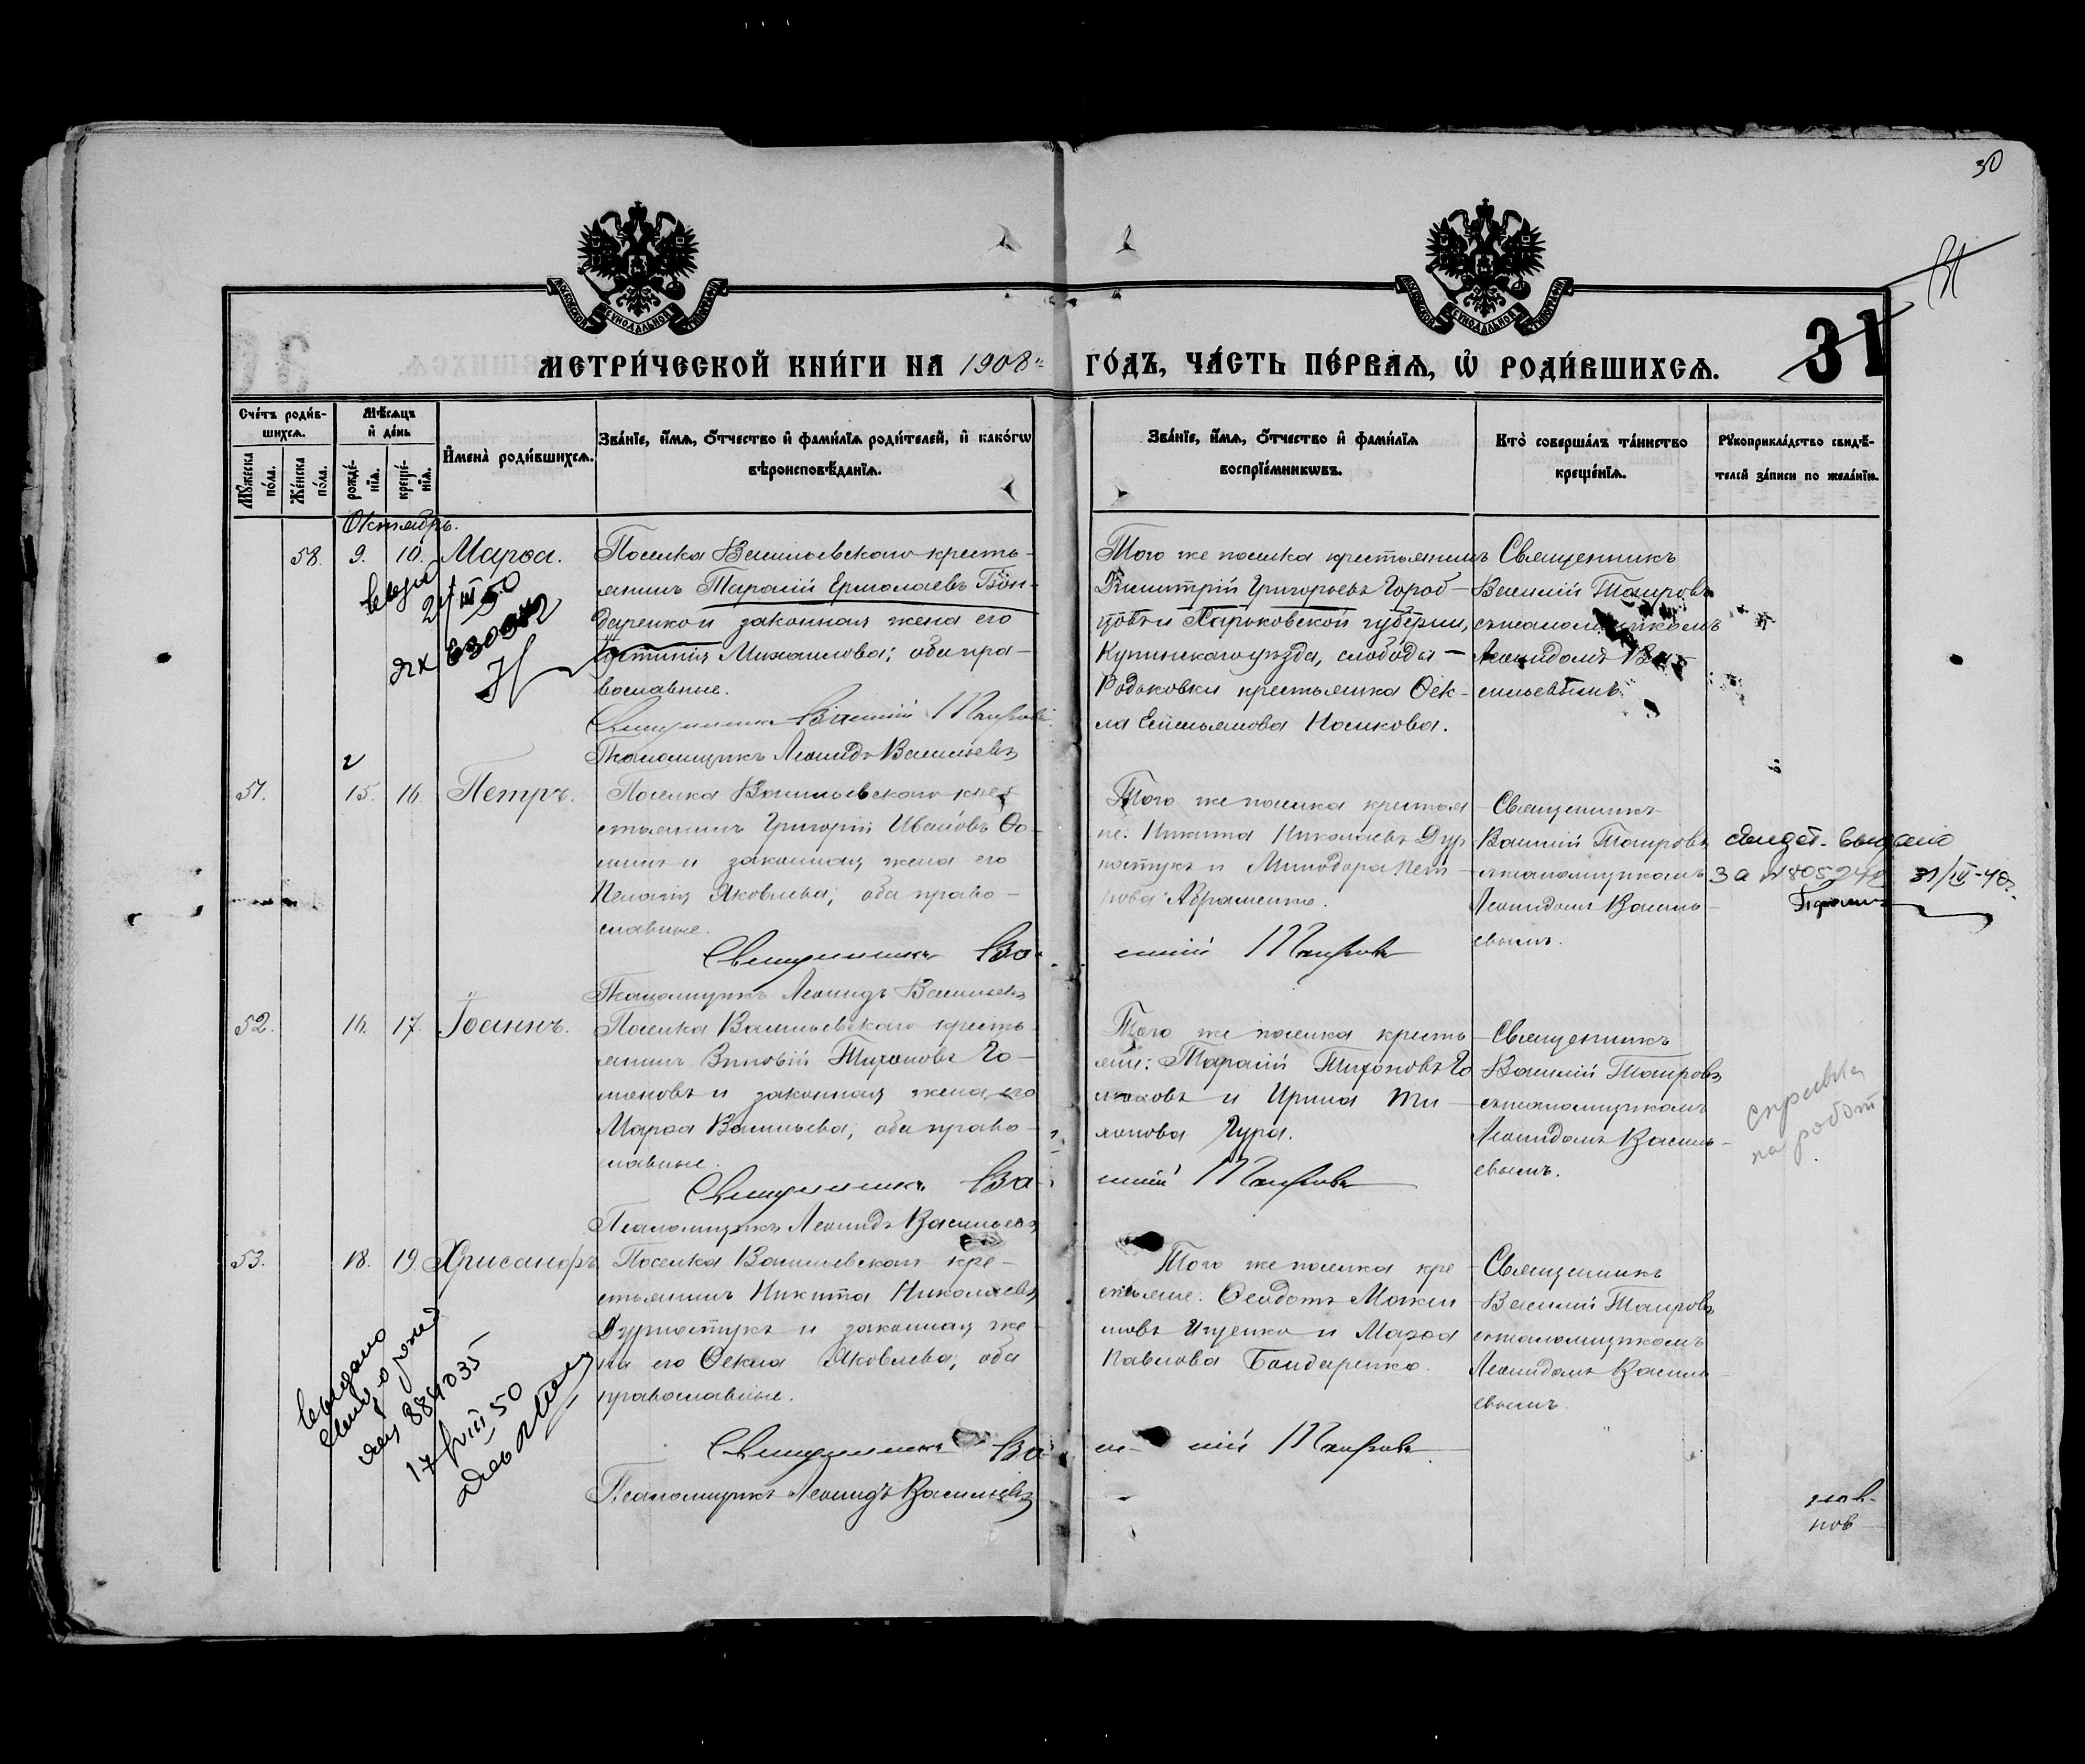 30
31
МЕТРИ́ЧЕСКОЙ КНИ́ГИ НА 1908 ГО́ДЪ, ЧА́СТЬ ПЕ́РВАѦ, Ѽ РОДИ́ВШИХСѦ.
Сче́тъ роди́в-
шихсѧ.
Мꙋ́жеска по́ла.
Же́нска по́ла.
Мѣ́сѧцъ
и҆ де́нь
рожде́-
нїѧ.
креще́-
нїѧ.
И҆мена̀ роди́вшихсѧ.
Зва́нїе, и҆́мѧ, ѻ҆́тчество и҆ фами́лїѧ роди́телей, и҆ како́гѡ
вѣроисповѣ́данїѧ.
Зва́нїе, и҆́мѧ, ѻ҆́тчество и҆ фами́лїѧ
воспрїе́мникѡвъ.
Кто̀ соверша́лъ та́инство
креще́нїѧ.
Рꙋкоприкла́дство свидѣ́-
телей за́писи по жела́нїю.
Октябрь.
58. 9. 10. Марѳа.
Поселка Васильевскаго кресть-
янинъ Тарасій Ермолаевъ Бон-
даренко и законная жена его
Іустинія Михаилова; оба пра-
вославные.
Священникъ Василій Таировъ
Псаломщикъ Леонидъ Васильевъ
Того же поселка крестьянинъ
Димитрій Григорьевъ Город-
цовъ и Харьковской губерніи,
Купянскаго уѣзда, слободы
крестьянка Ѳек-
ла Емельянова Носикова.
Священникъ
Василій Таировъ
съ псаломщикомъ
Леонидомъ Ва-
сильевымъ.
51. 15. 16. Петръ.
Поселка Васильевскаго кре-
стьянинъ Григорій Ивановъ Ѳо-
минъ и законная жена его
Пелагія Яковлева; оба право-
славные.
Священникъ Ва-
силій Таировъ
Псаломщикъ Леонидъ Васильевъ
Того же поселка крестья-
не: Никита Николаевъ Дур-
ностукъ и Минодора Пет-
рова Авраменко.
Священникъ
Василій Таировъ
съ псаломщикомъ
Леонидомъ Василь-
евымъ.
свидет. выдано
31/IV-40г.
52. 16. 17. Іоаннъ.
Поселка Васильевскаго кресть-
янинъ Зиновій Тихоновъ Го-
моновъ и законная жена его
Марѳа Васильева; оба право-
славные.
Священникъ Ва-
силій Таировъ
Псаломщикъ Леонидъ Васильевъ
Того же поселка кресть-
яне: Тарасій Тихоновъ Го-
моновъ и Ирина Ти-
хонова Гура.
Священникъ
Василій Таировъ
съ псаломщикомъ
Леонидомъ Василь-
евымъ.
справка
на работ
53. 18. 19. Хрисанфъ
Поселка Васильевскаго кре-
стьянинъ Никита Николаевъ
Дурностукъ и законная же-
на его Ѳекла Яковлева; оба
православные.
Священникъ Ва-
силій Таировъ
Псаломщикъ Леонидъ Васильевъ
Того же поселка кре-
стьяне: Ѳеодотъ Макси-
мовъ Ищенко и Марѳа
Павлова Бондаренко.
Священникъ
Василій Таировъ
съ псаломщикомъ
Леонидомъ Василь-
евымъ.
выдано
17/VIII 50